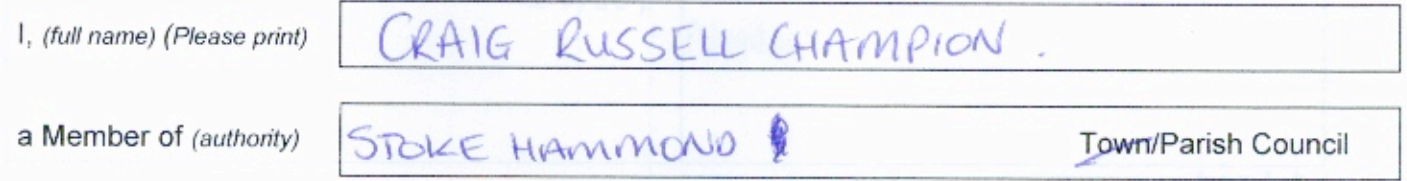 I, (full name) (Please print) CRAIG RUSSELL CHAMPION .
a Member of (authority) STOKE HAMMOND Town/Parish Council